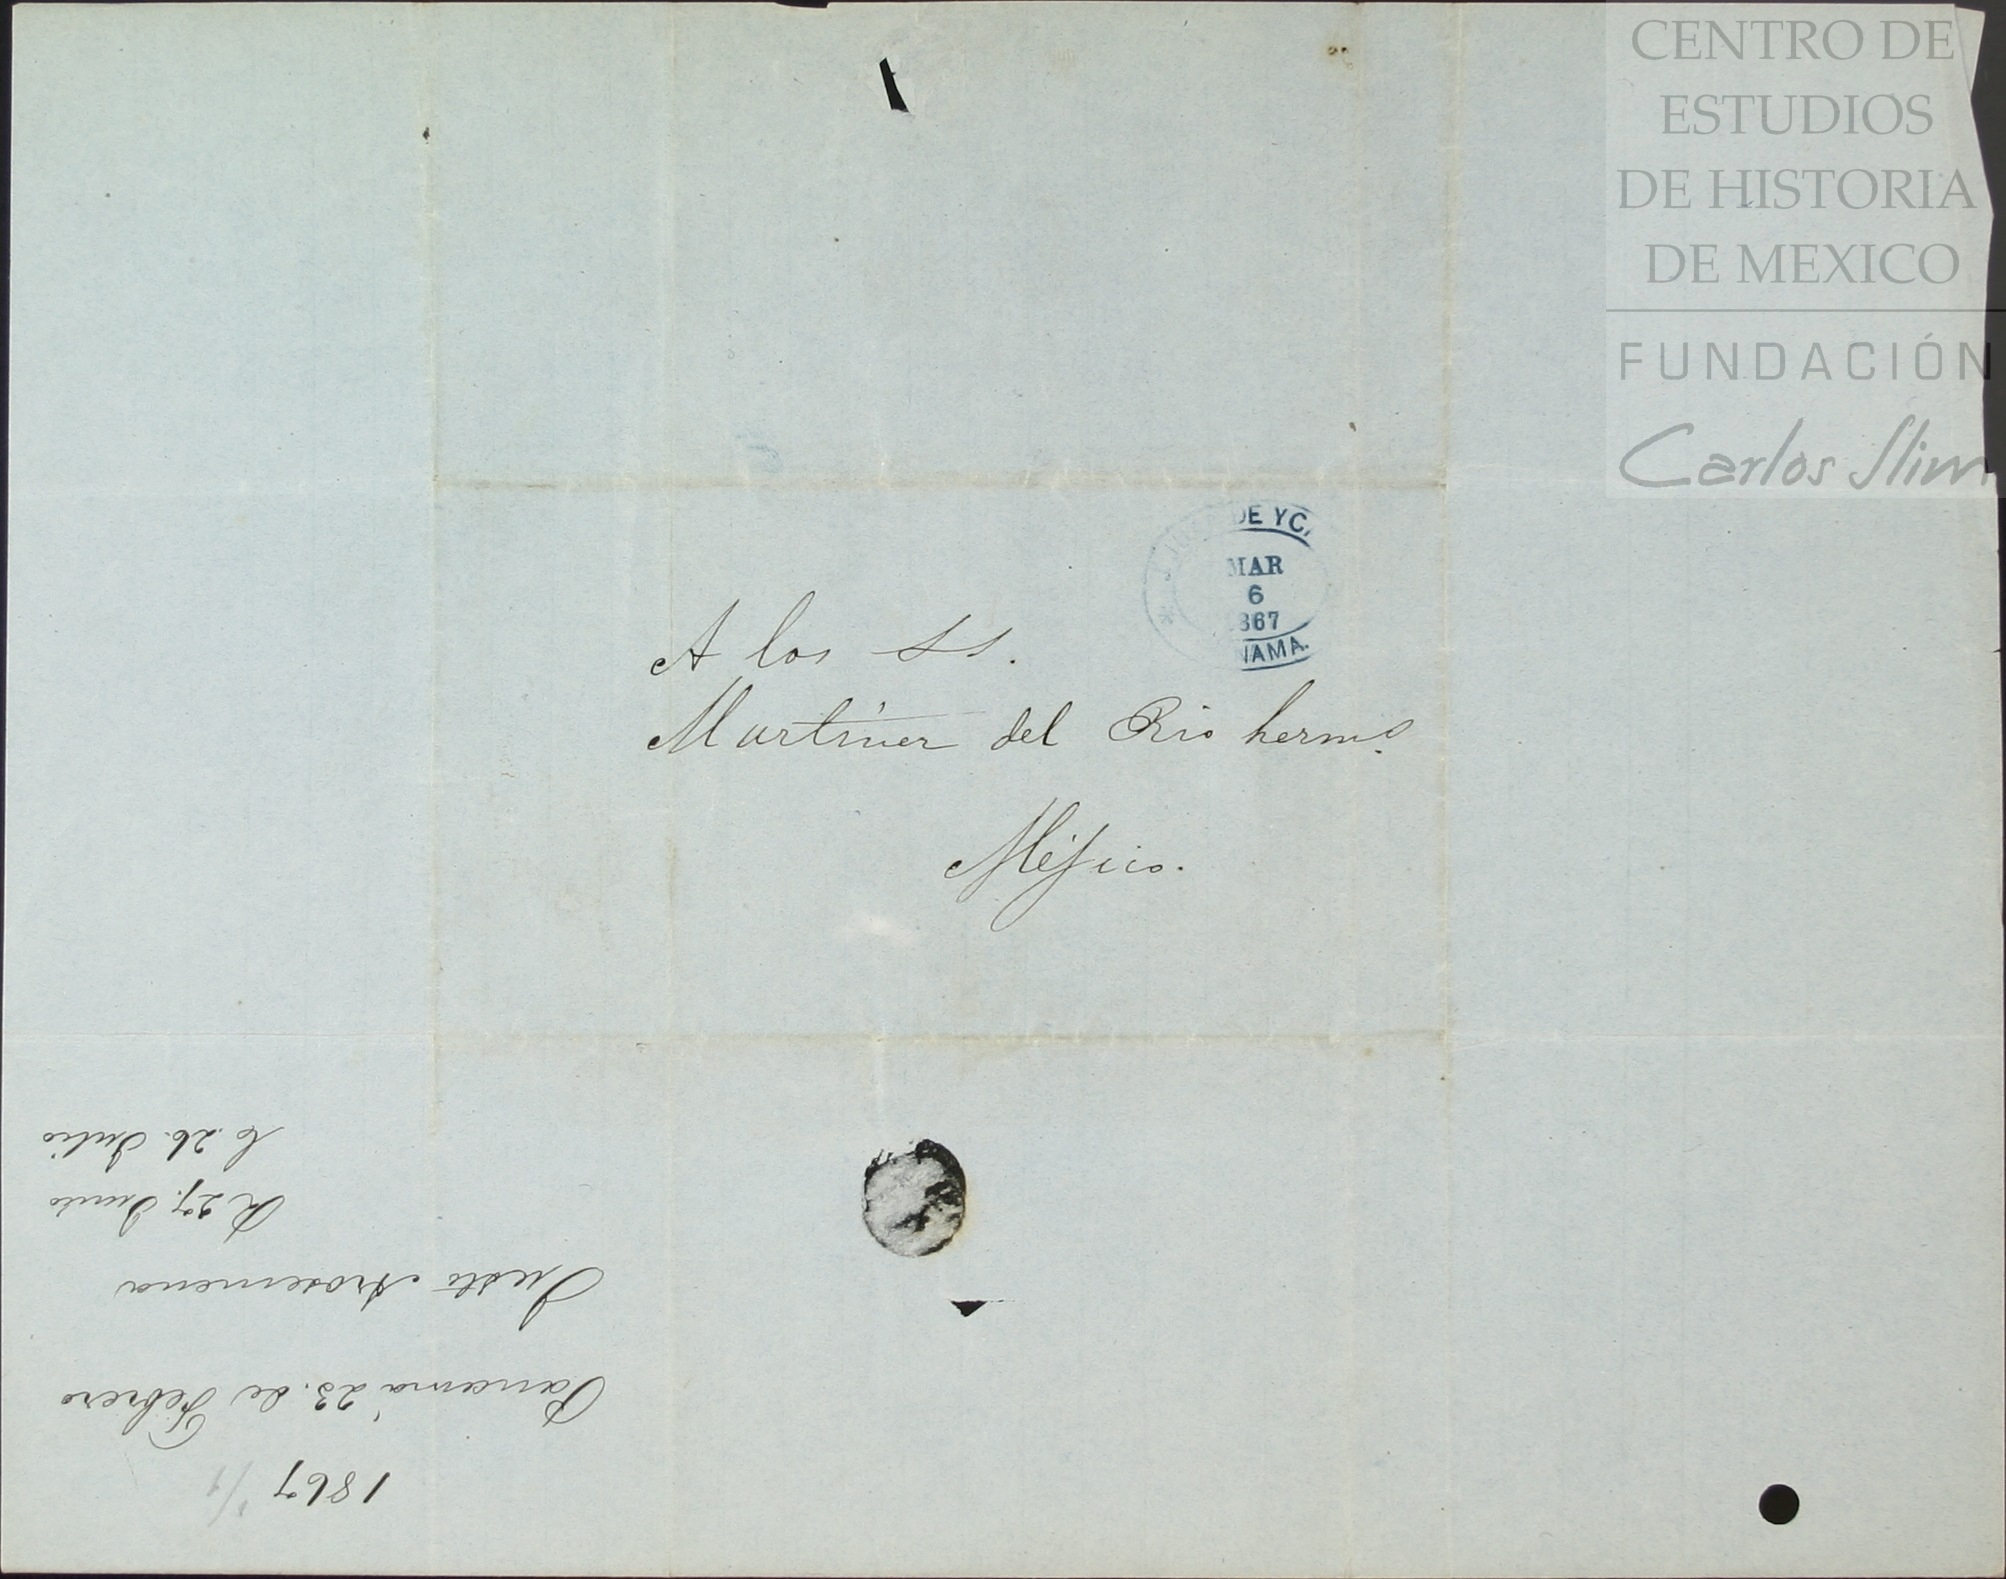 CENTRO DE
ESTUDIOS
DE HISTORIA
DE MEXICO
FUNDACIÓN
Carlos Slim
DE YCA
MAR
6
1867
NAMA.
A los SS.
Martínez del Rio hermos.
Méjico.
1867
Panamá 23. de Febrero
Justo Arosemena
R 27. Junio
C. 26. Julio